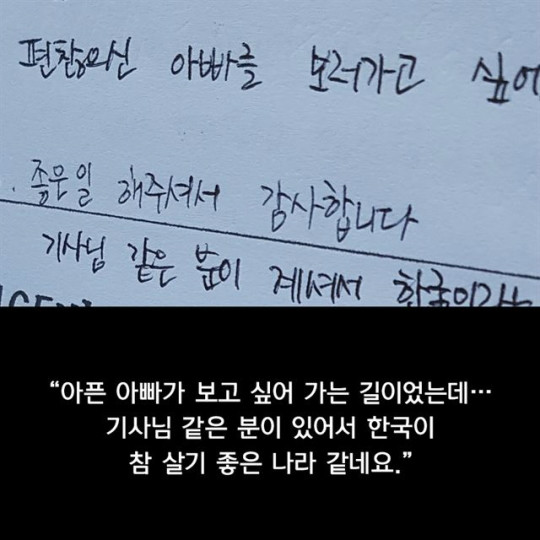 편찮으신 아빠를 보러가고 싶어
좋은일 해주셔서 감사합니다
기사님 같은 분이 계셔서 한국이라는
“아픈 아빠가 보고 싶어 가는 길이었는데…
기사님 같은 분이 있어서 한국이
참 살기 좋은 나라 같네요.”